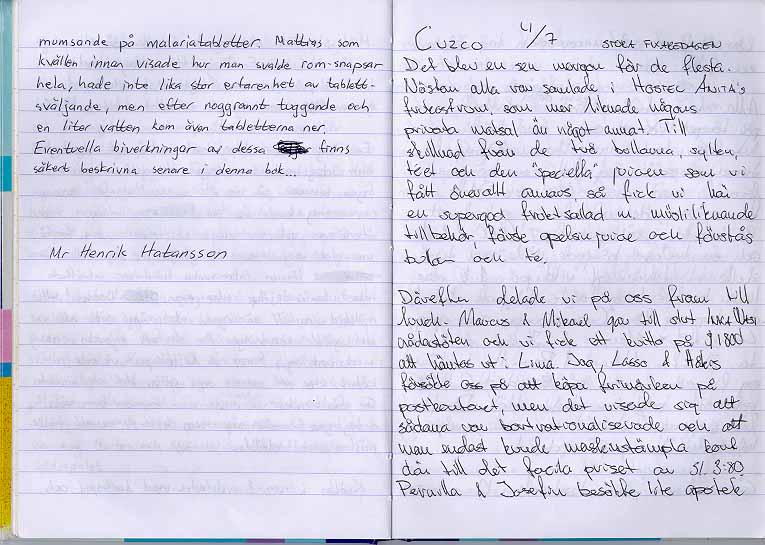 mumsande på malariatabletter. Mattias som
kvällen innan visade hur man svalde rom-snapsar
hela, hade inte lika stor erfarenhet av tablett-
sväljande, men efter noggrannt tuggande och
en liter vatten kom även tabletterna ner.
Eventuella biverkningar av dessa finns
säkert beskrivna senare i denna bok...
Mr Henrik Hakansson
Cuzco 4/7 STORA FIXAREDAGEN
Det blev en sen morgon för de flesta.
Nästan alla var samlade i Hostel Anita's
frukostrum, som mer liknade någons
privata matsal än något annat. Till
skillnad från de två bullarna, sylten,
téet och den "speciella" juicen som vi
fått överallt annars, så fick vi här
en supergod fruktsallad m. müsliliknande
tillbehör, färsk apelsinjuice och förstås
bullar och te.
Därefter delade vi på oss fram till
lunch. Marcus & Mikael gav till slut
och vi fick ett kvitto på $1800
att hämtas ut i Lima. Jag, Lasse &
försökte oss på att köpa frimärken på
postkontoret, men det visade sig att
sådana var bortrationaliserade och att
man endast kunde maskinstämpla kort
där till det facila priset av S/. 3:80
Pernilla & Josefin besökte lite apotek